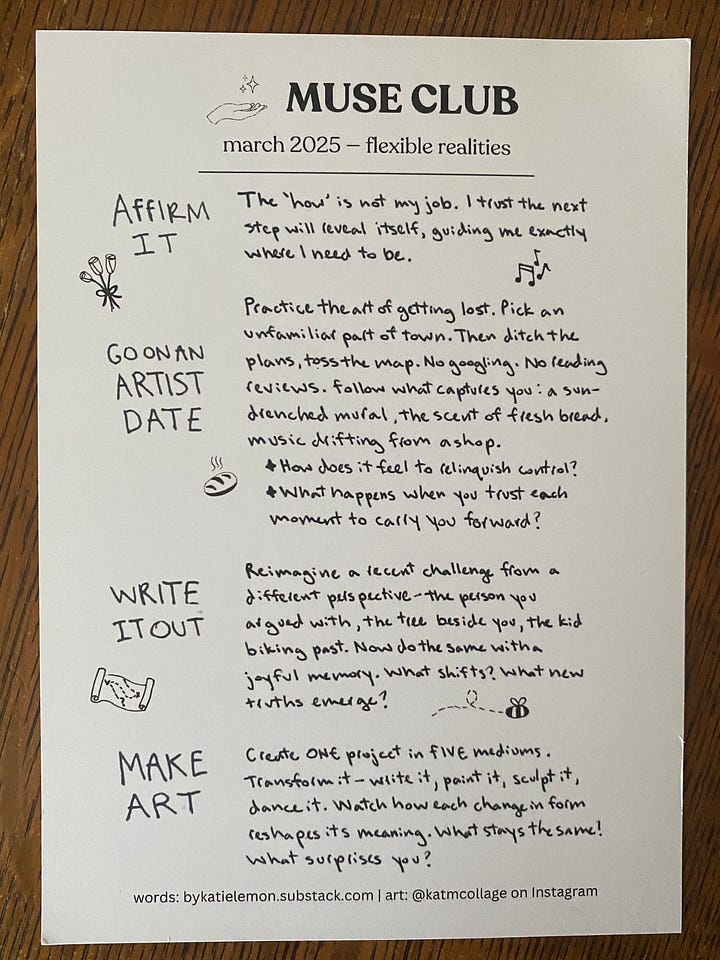 MUSE CLUB
march 2025 – flexible realities
AFFIRM
IT
The 'how' is not my job. I trust the next
step will reveal itself, guiding me exactly
where I need to be.
GO ON AN
ARTIST
DATE
Practice the art of getting lost. Pick an
unfamiliar part of town. Then ditch the
plans, toss the map. No googling. No reading
reviews. Follow what captures you: a sun-
drenched mural, the scent of fresh bread,
music drifting from a shop.
* How does it feel to relinquish control?
* What happens when you trust each
moment to carry you forward?
WRITE
IT OUT
Reimagine a recent challenge from a
different perspective – the person you
argued with, the tree beside you, the kid
biking past. Now do the same with a
joyful memory. What shifts? What new
truths emerge?
MAKE
ART
Create ONE project in FIVE mediums.
Transform it – write it, paint it, sculpt it,
dance it. Watch how each change in form
reshapes its meaning. What stays the same?
What surprises you?
words: bykatielemon.substack.com | art: @katmcollage on Instagram